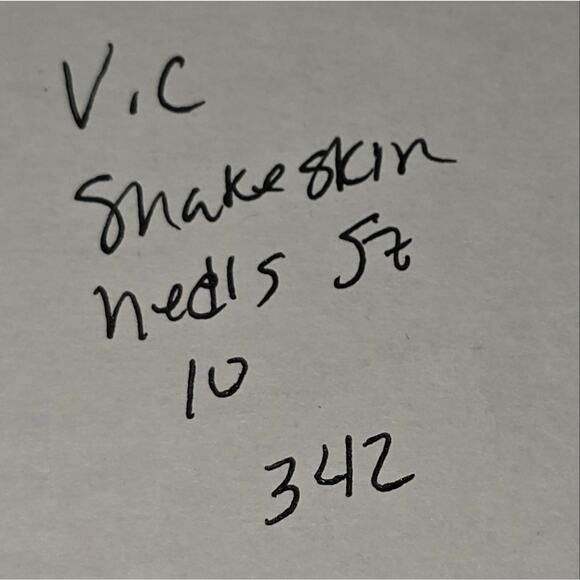 V.C
Snakeskin
hedls Sz
10
342